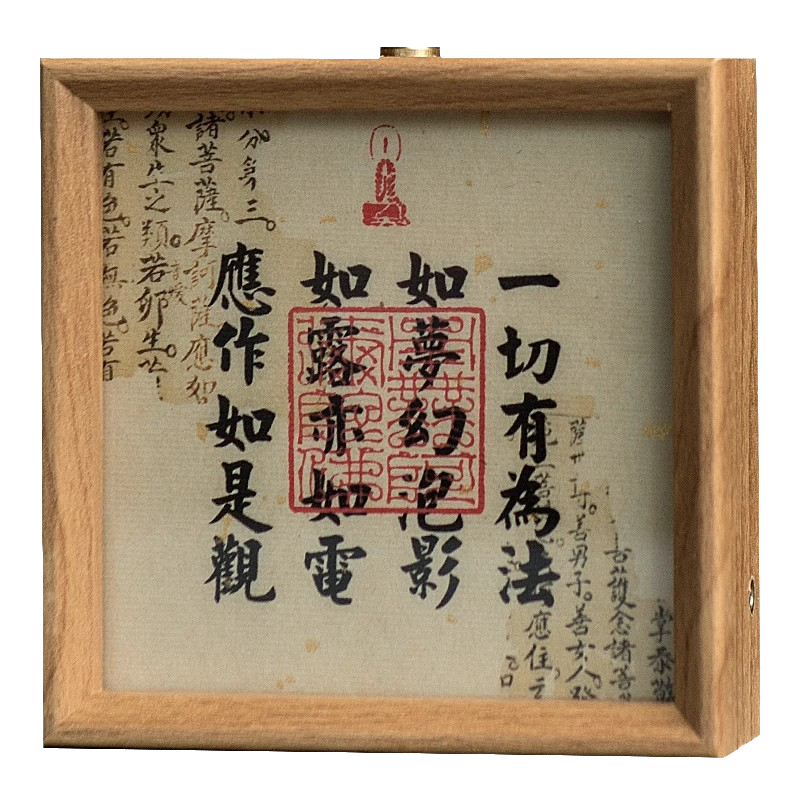 一切有為法
如夢幻泡影
如露亦如電
應作如是觀
掌恭敬
護念諸菩
善男子。善女人。發
應住。云
分第三。
諸菩薩。摩訶薩應如
眾生之類。若卵生。
若有色。若無色。若有